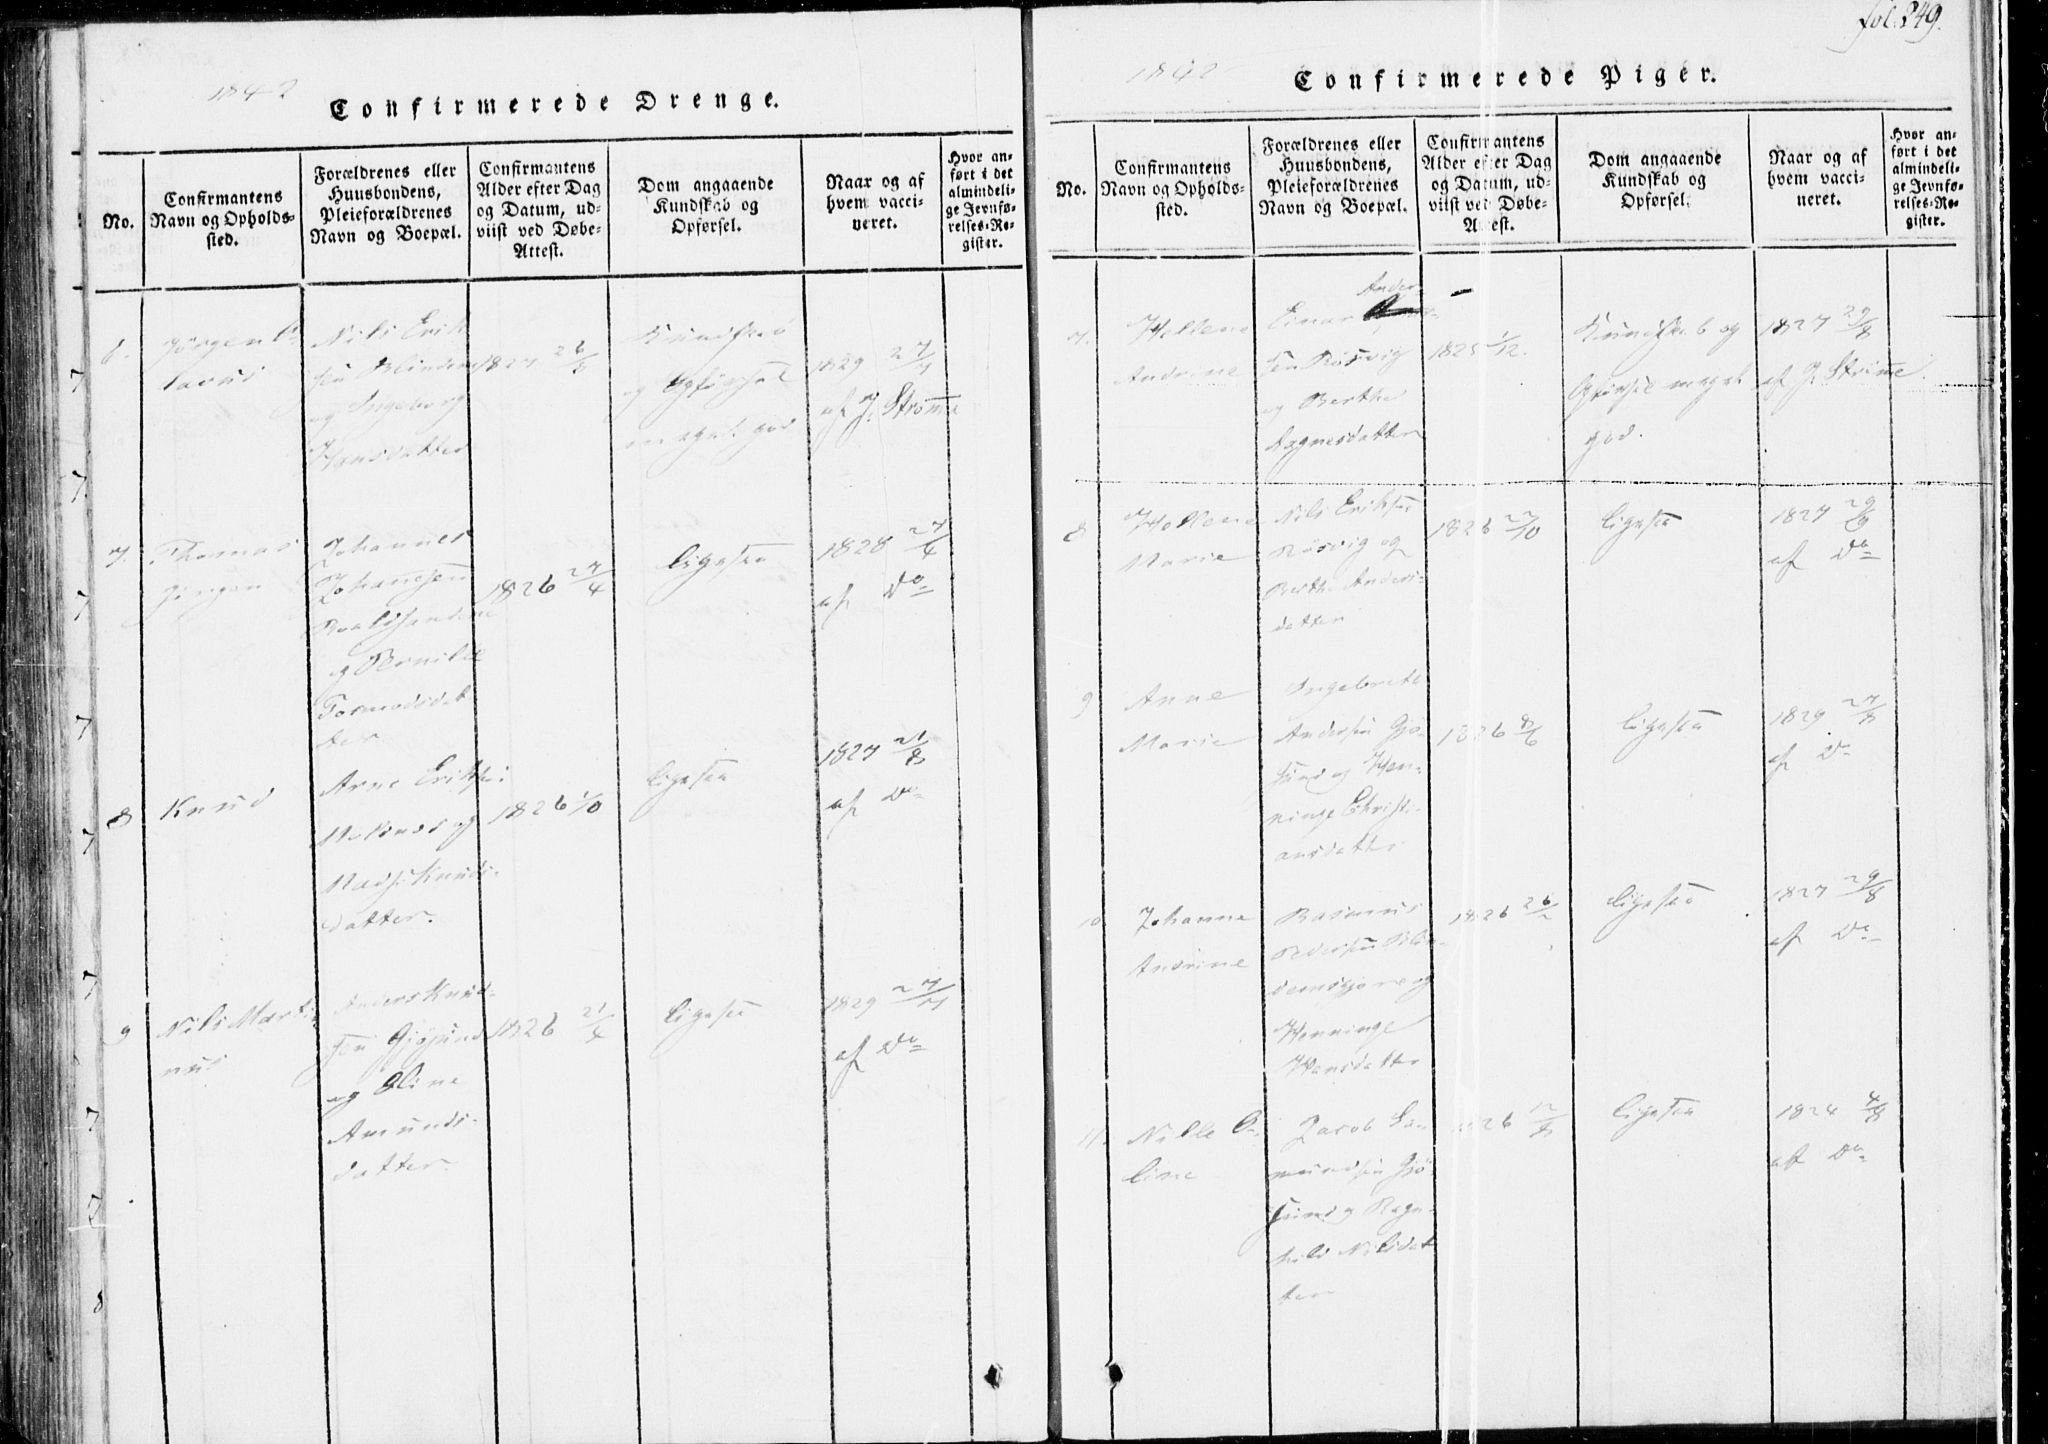 1842
Confirmerede Drenge.
No.
Confirmantens
Navn og Opholds-
sted.
Forældrenes eller
Huusbondens,
Pleieforældrenes
Navn og Boepæl.
Confirmantens
Alder efter Dag
og Datum, ud-
viist ved Døbe-
Attest.
Dom angaaende
Kundskab og
Opførsel.
Naar og af
hvem vacci-
neret.
Hvor an-
ført i det
almindeli-
ge Jevnfø-
relses-Re-
gister.
6.
Jörgen O-
lavus
Nils Erik-
sen
og Ingeborg
Hansdatter
1827 26/5
Kundskab
og Opførsel
meget god
1829 27/7
af J. Strømme
7.
Thomas
Jörgen
Johannes
Johannesen
Roaldsanden
og
Tormodsdat
ter
1826 27/4
ligesaa
1828 27/4
af Do
8
Knud
Arne Eriksen
og
Knuds-
datter.
1826 1/10
ligesaa
1827 21/8
af Do
9
Nils Marti-
nus
Anders Knud-
sen Gjøsund
og Oline
Amunds-
datter.
1826 21/4
ligesaa
1829 27/7
af Do
fol. 249.
1842
Confirmerede Piger.
No.
Confirmantens
Navn og Opholds-
sted.
Forældrenes eller
Huusbondens,
Pleieforældrenes
Navn og Boepæl.
Confirmantens
Alder efter Dag
og Datum, ud-
viist ved Døbe-
Attest.
Dom angaaende
Kundskab og
Opførsel.
Naar og af
hvem vacci-
neret.
Hvor an-
ført i det
almindeli-
ge Jevnfø-
relses-Re-
gister.
7.
Hellene
Andrine
Ander-
Einar
sen Røsvig
og Berthe
datter
1825 1/12.
Kundskab og
Opførsel meget
god.
1827 29/8
af J. Strømme.
8
Hellene
Marie
Nils Eriksen
Røsvig og
Berthe Anders-
datter
1826 22/10
ligesaa
1827 29/8
af Do
9
Anne
Marie
Ingebrekt
Andersen Gjø-
sund og Hen-
ninge Christi-
ansdatter
1826 8/6
ligesaa
1829 27/8
af Do
10
Johanne
Andrine
Rasmus
Pedersen Blin-
demsfjøre og
Henninge
Hansdatter
1826 26/2
ligesaa
1827 29/8
af Do
11.
Nille O-
line
Jacob Sa-
mundsen Gjø-
sund og Ragn-
hild Nilsdat
ter
1826 12/8
ligesaa
1824 4/8
af Do